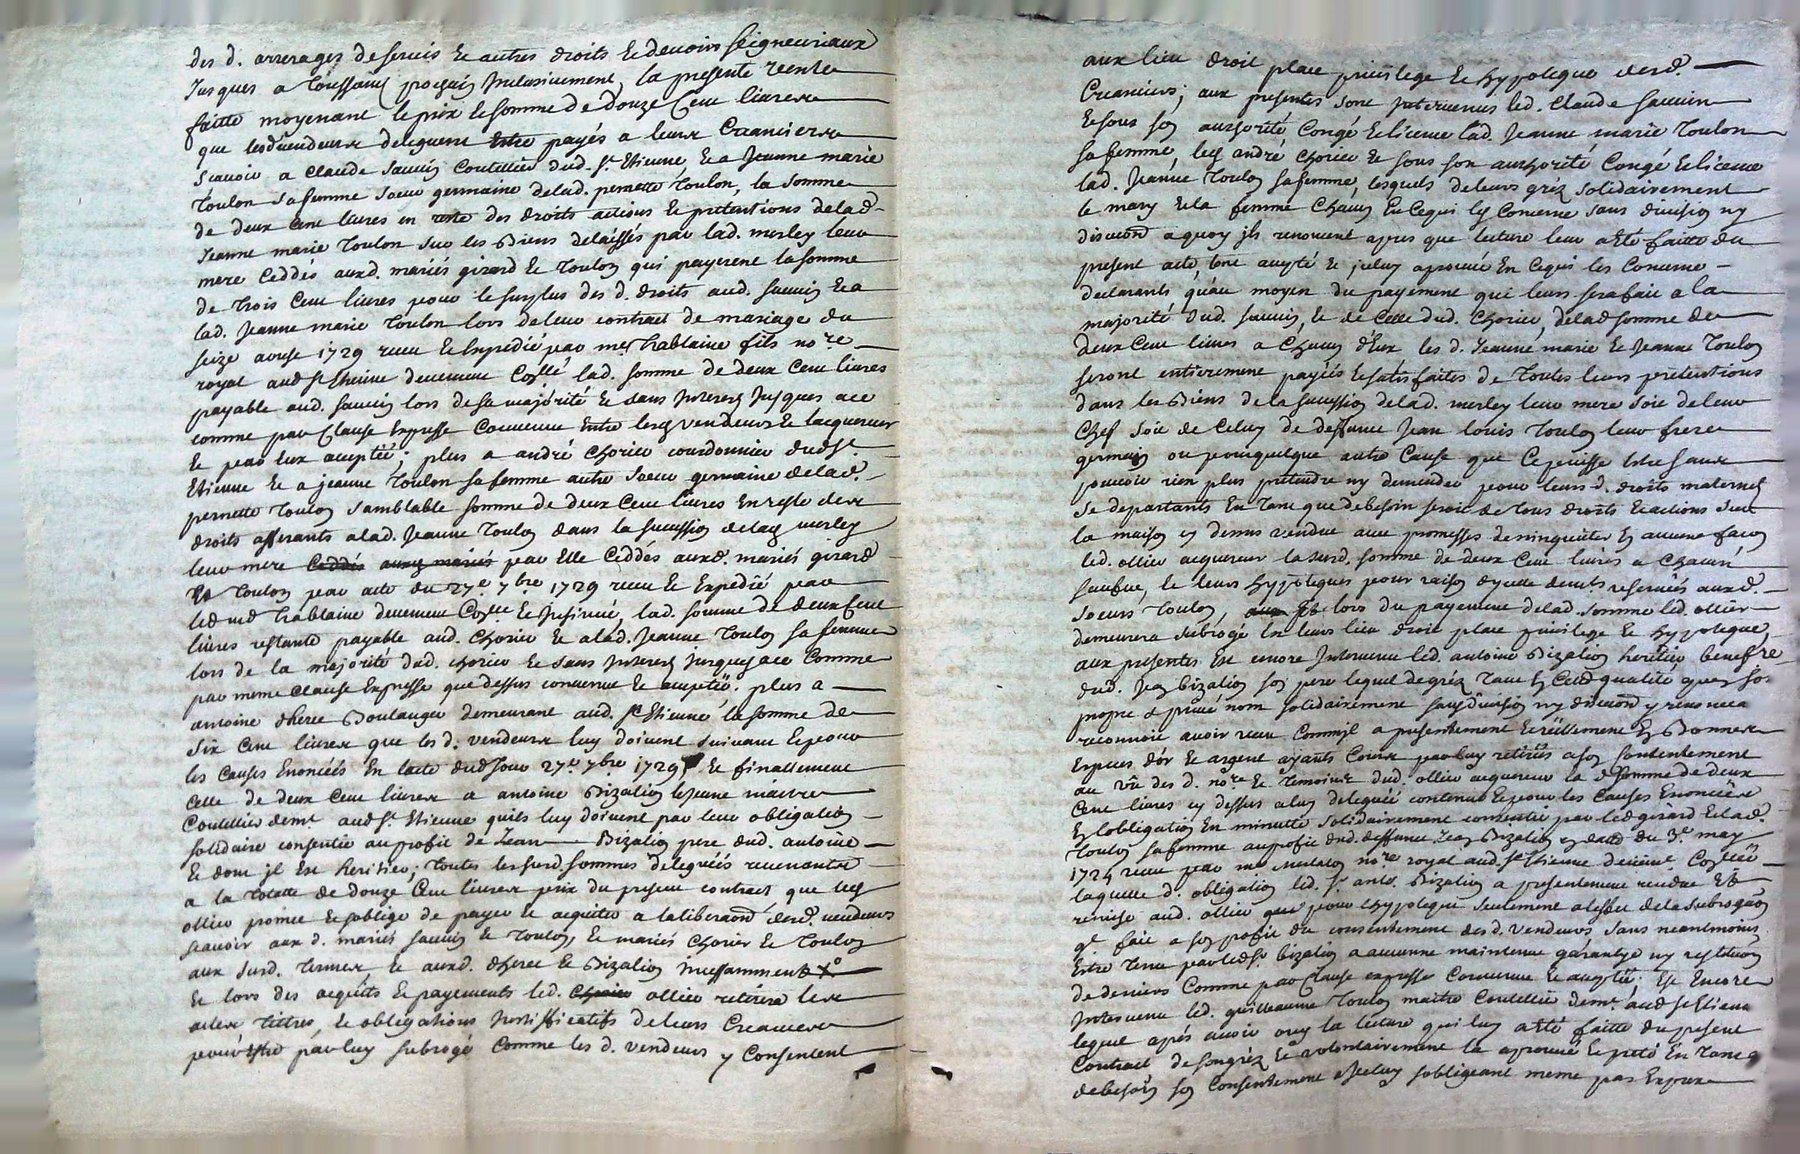 des d. arrerages de servis & autres droits & devoirs seigneuriaux
Jusques a Toussaint prochain Inclusivement, la presente vente
faitte moyenant le prix & somme de douze Cent livres
que lesd vendeurs deleguent Entre payés a leurs Creanciers
scavoir a Claude sauvin Coutellier dud. St. Etienne & a Jeanne marie
Toulon sa femme soeur germaine delad. pernette Toulon, la somme
de deux Cent livres en reste des droits actions & pretentions delad.
Jeanne marie Toulon sur les Biens delaissés par lad. merley leur
mere Ceddés auxd. mariés girard & Toulon qui payerent la somme
de Trois Cent livres pour le surplus des d. droits aud. sauvin & a
lad. Jeanne marie Toulon lors deleur contract de mariage du
seize 1729 receu & Expedié par me. Thablaine fils nore.
royal aud St Etienne devenüe lad. somme de deux Cent livres
payable aud. sauvin lors de sa majorité & sans Interest Jusques a ce
comme par Clause Expresse Convenüe Entre lesd vendeurs & lacquereur
& par Eux acceptée; plus a andré Chorier courdonnier dud St.
Etienne & a jeanne Toulon sa femme autre soeur germaine delad.
pernette Toulon samblable somme de deux Cent livres En reste des
droits afferants alad. Jeanne Toulon dans la succession delad merley
leur mere Ceddés auxd mariés par Elle Ceddés auxd. mariés girard
& Toulon par acte du 27e. 7bre 1729 receu & Expedié par
led me Thablaine devenüe & Insinué, lad. somme de deux Cent
livres restante payable aud. Chorier & alad. Jeanne Toulon sa femme
lors de la majorité dud. chorier & sans Interest jusques a ce Comme
par meme Clause Expresse que dessus convenüe & acceptée. plus a
antoine dheree Boulanger demeurant aud. St Etienne, la somme de
six Cent livres que les d. vendeurs luy doivent suivant & pour
les Causes Enoncées En lacte dud Jour 27e. 7bre 1729 & finallement
Celle de deux Cent livres a antoine Bizalion le Jeune maitre
Coutellier demt. aud St. Etienne quils luy doivent par leur obligation
solidaire consentie au profit de Jean Bizalion pere dud. antoine
& dont jl Est heritier; Toutes les susd sommes deleguées revenantes
a la Totalle de douze Cent livres prix du present contract que led
ollier promet & soblige de payer & acquitter a la liberaon desd. vendeurs
scavoir aux d. mariés sauvin & Toulon, & mariés Chorier & Toulon
aux susd. Termes, & auxd. dheree & Bizalion Incessamment
& lors des acquits & payements led. Chorier ollier retirera les
actes Titres, & obligations Justifficatifs de leurs Creances
pour Estre par luy subrogé Comme les d. vendeurs y Consentent
aux lieu droit place privilege & hypoteque desd.
Creanciers; aux presentes sont Intervenus led. Claude sauvin
& sous son authorité Congé & licence lad. Jeanne marie Toulon
sa femme, led andré chorier & sous son authorité Congé & licence
lad. Jeanne Toulon sa femme, lesquels de leurs grez solidairement
le mary & la femme Chacun En Cequi les Concerne sans division ny
discution a quoy jls renoncent apres que lecture leur a Eté faitte du
present acte ont accepté & jceluy aprouvé En Cequi les Concerne
declarants qu'au moyen du payement qui leurs sera fait a la
majorité dud. sauvin, & de Celle dud. Chorier, delad somme de
deux Cent livres a Chacun d'Eux les d. Jeanne marie & Jeanne Toulon
seront entierement payées & satisfaites de Toutes leurs pretentions
dans les Biens de la succession delad. merley leur mere soit de leur
Chef soit de Celuy de deffunct Jean louis Toulon leur frere
germain ou pour quelque autre Cause que Ce puisse Estre sans
pouvoir rien plus pretendre ny demander pour leurs d. droits maternels
se departants En Tant que debesoin seroit de Tous droits & actions sur
la maison cy dessus vendue avec promesses de ninquieter En aucune facon
led. ollier acquereur lasusd. somme de deux Cent livres a Chacun
sauve, & leurs hypoteques pour raison dycelle demts. reservées auxd.
soeurs Toulon, & lors du payement delad. somme led. ollier
demeurera subrogé En leurs lieu droit place privilege & hypoteque,
aux presentes Est encore Intervenu led. antoine Bizalion heritier beneffre
dud. Jean bizalion son pere lequel de grez Tant En Cette qualité quen son
propre & privé nom solidairement sans division ny discution y renoncea
reconnoit avoir receu Commejl a presentement & réellement En Bonnes
Especes d'or & argent ayants Cours par luy retirées a son Contentement
au vû des d. nore. & Temoins dud. ollier acquereur la d somme de deux
Cent livres cy dessus a luy deleguée contenue & pour les Causes Enoncées
En lobligation En minutte solidairement consentie par led girard & lad.
Toulon sa femme au profit dud. deffunct Jean Bizalion en datte du 3e. may
1724 receu par me. merlaton nore royal aud. St Etienne
laquelle d. obligation led. sr. ante. Bizalion a presentement rendue &
remise aud. ollier que pour hypoteque seulement a leffet de la subrogaon
qt. fait a son profit du consentement des d. vendeurs sans neantmoins
Estre Tenu par led sr. bizalion a aucune maintenue garantye ny restitution
de deniers Comme par Clause expresse Convenue & acceptée, Est Encore
Intervenu led. guillaume Toulon maitre Coutellier demt. aud St Etienne
lequel apres avoir ouy la lecture qui luy a Eté faitte du present
Contract de son grez & volontairement la aprouvé & preté En Tant q
debesoin son Consentement a Jceluy sobligeant meme par Expres